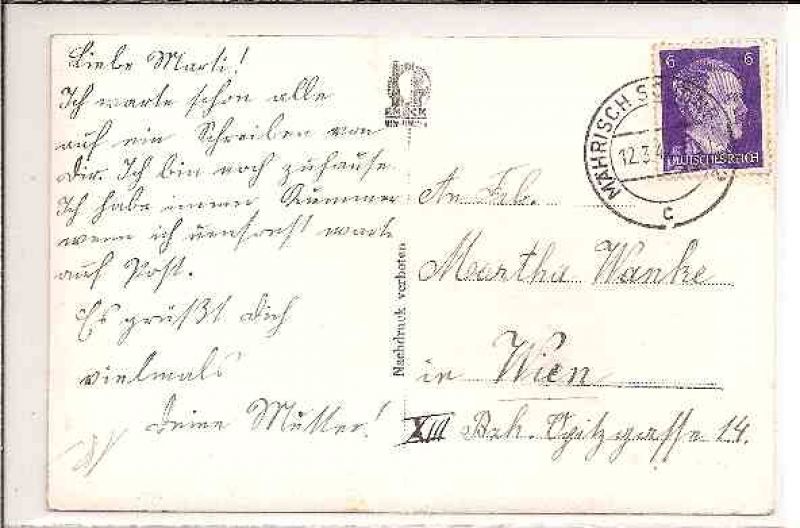 Liebe Marti!
Ich warte schon alle
auf ein Schreiben von
Dir. Ich bin noch zuhause.
Ich habe immer Kummer
wenn ich umsonst warte
auf Post.
Es grüßt Dich
vielmals
Deine Mutter!
Nachdruck verboten
6 6
DEUTSCHES REICH
MÄHRISCH S
12.3.4
c
An Frl.
Martha Wanke
in Wien
XIII Bzk. Opitzgasse 14.